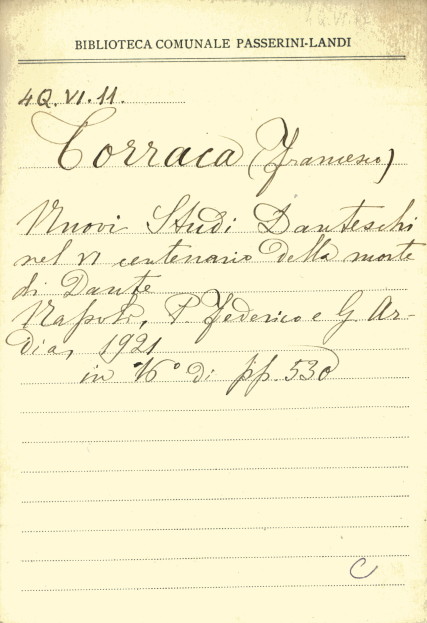 BIBLIOTECA COMUNALE PASSERINI-LANDI
4Q.VI.11.
Torraca (Francesco)
Nuovi Studi Danteschi
nel VI centenario della morte
di Dante
Napoli, P. Federico e G. Ar-
dia, 1921
in 16° di pp. 530
C